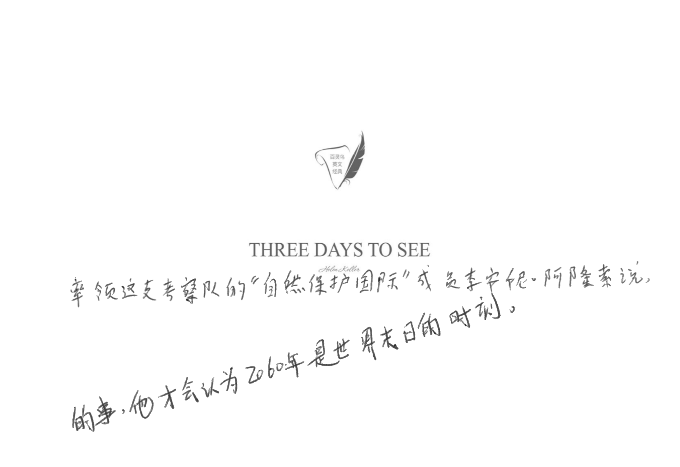 英文
经典
THREE DAYS TO SEE
Helen Keller
率领这支考察队的“自然保护国际”成员李安尼。阿隆索说,
的事,他才会认为2060年是世界末日的时刻。